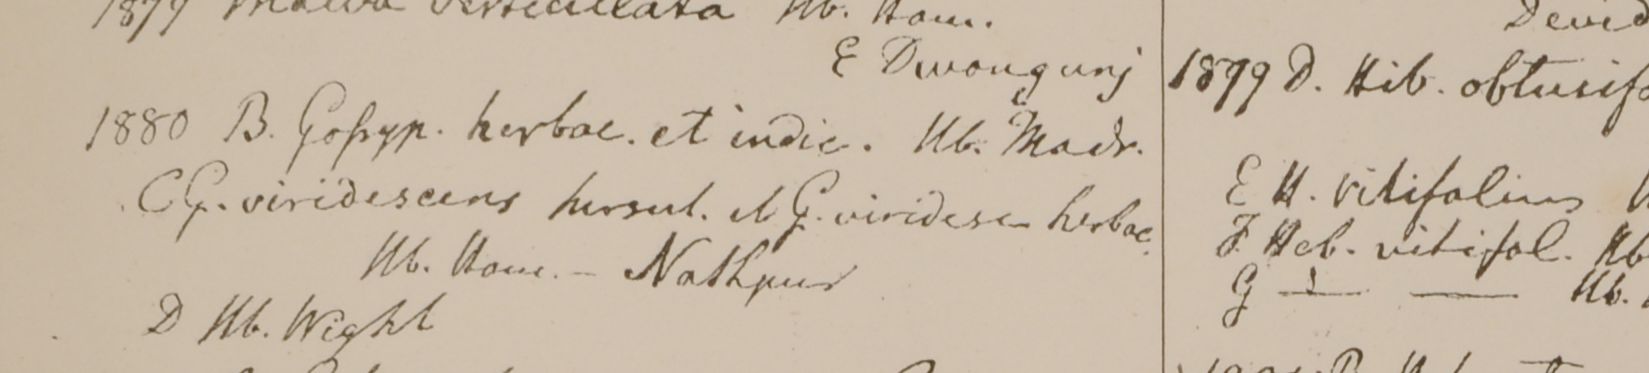 1879 Malva verticillata Hb. Ham.
E Dwongunj
1880 B. Goſsyp. herbac. et indic. Hb. Madr.
C G. viridescens hirsut. et G. viridesc herbac.
Hb. Ham. — Nathpur
D Hb. Wight
1879 D. Hib. obtusifo
E H. vitifolius
F Heb. vitifol. Hb
G — — Hb.